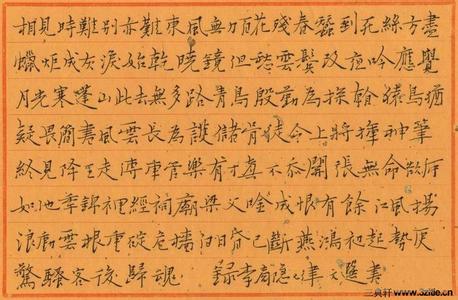 相見時難别亦難東風無力百花殘春蠶到死絲方盡
蠟炬成灰淚始乾曉鏡但愁雲鬢改夜吟應覺
月光寒蓬山此去無多路青鳥殷勤為探看猿鳥猶
疑畏簡書風雲長為護儲胥徒令上將揮神筆
終見降王走傳車管樂有才真不忝關張無命欲何
如他年錦裡經祠廟梁父吟成恨有餘江風揚
浪動雲根重碇危檣白日昏已斷燕鴻初起勢更
驚騷客後歸魂 錄李商隱七律 文選書
三貞軒 www.3zitie.cn